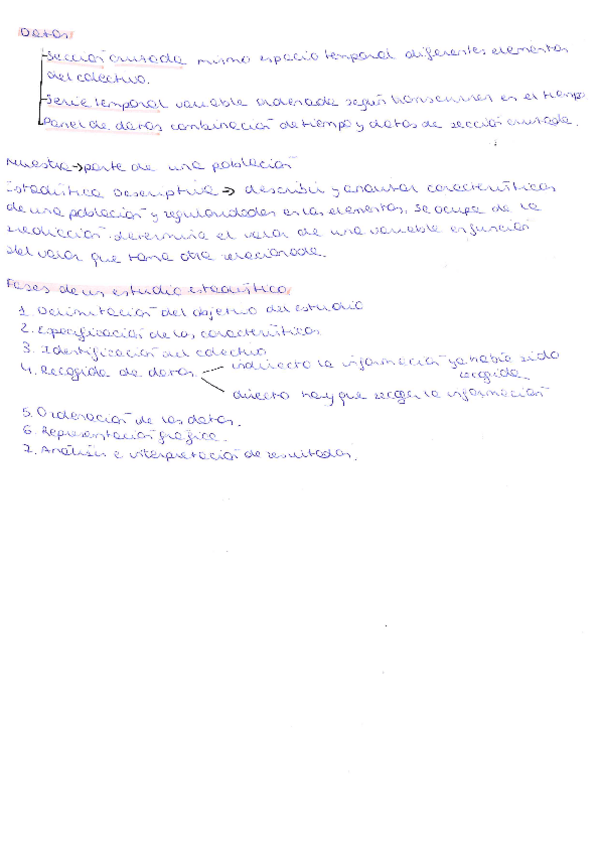 Datos
Sección cruzada mismo espacio temporal diferentes elementos
del colectivo.
Serie temporal variable ordenada según transcurren en el tiempo
Panel de datos combinación de tiempo y datos de sección cruzada.
Muestra → parte de una población
Estadística Descriptiva → describir y analizar características
de una población y regularidades en los elementos, se ocupa de la
predicción. determina el valor de una variable en función
del valor que toma otra relacionada.
Fases de un estudio estadístico
1. Delimitación del objetivo del estudio
2. Especificación de las características
3. Identificación del colectivo
4. Recogida de datos indirecto la información ya había sido
recogida
directo hay que recoger la información
5. Ordenación de los datos.
6. Representación gráfica.
7. Análisis e interpretación de resultados.